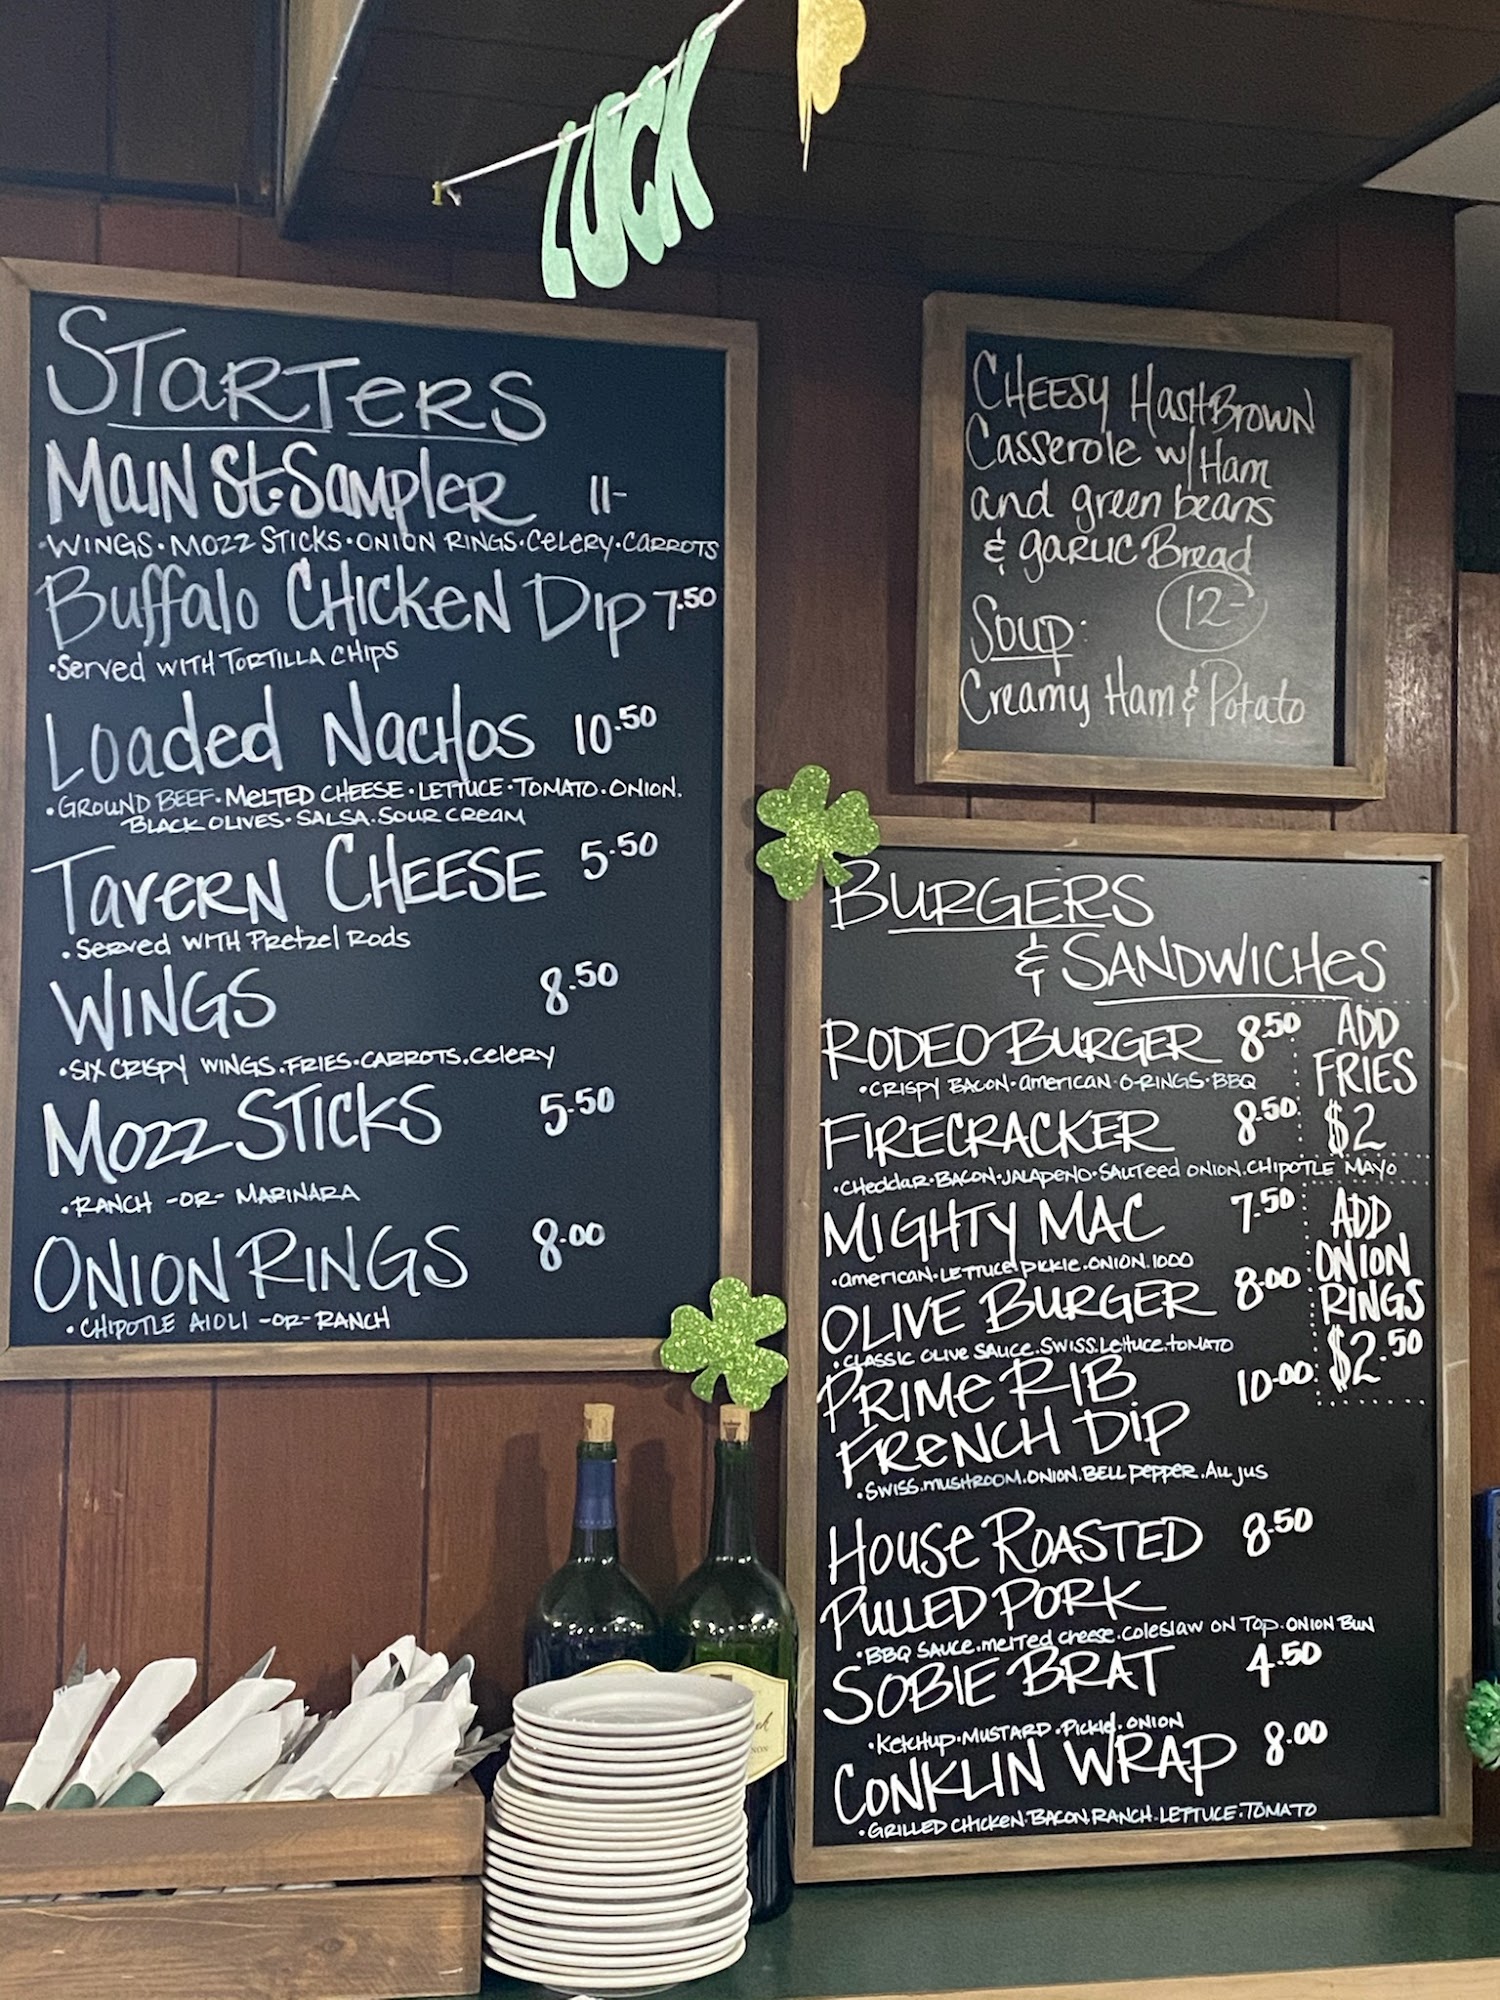 LUCK
STARTERS
MAIN St. SAMPLER 11-
·WINGS·MOZZ STICKS·ONION RINGS·CELERY·CARROTS
Buffalo CHICKEN DIP 7.50
·Served WITH TORTILLA CHIPS
Loaded NACHOS 10.50
·GROUND BEEF·MELTED CHEESE·LETTUCE·TOMATO·ONION·
BLACK OLIVES·SALSA·SOUR CREAM
TAVERN CHEESE 5.50
·Served WITH Pretzel Rods
WINGS 8.50
·SIX CRISPY WINGS·FRIES·CARROTS·CELERY
MOZZ STICKS 5.50
·RANCH -OR- MARINARA
ONION RINGS 8.00
·CHIPOTLE AIOLI -OR- RANCH
CHEESY HASHBROWN
Casserole w/ Ham
and green beans
& garlic Bread
12-
Soup:
Creamy Ham & Potato
BURGERS
& SANDWICHES
RODEO BURGER 8.50
·CRISPY BACON·AMERICAN·O-RINGS·BBQ
FIRECRACKER 8.50
·CHEDDAR·BACON·JALAPENO·SAUTEED ONION·CHIPOTLE MAYO
MIGHTY MAC 7.50
·AMERICAN·LETTUCE·PICKLE·ONION·1000
OLIVE BURGER 8.00
·CLASSIC OLIVE SAUCE·SWISS·LETTUCE·TOMATO
PRIME RIB 10.00
FRENCH DIP
·SWISS·MUSHROOM·ONION·BELL PEPPER·AU JUS
HOUSE ROASTED 8.50
PULLED PORK
·BBQ SAUCE·MELTED CHEESE·COLESLAW ON TOP·ONION BUN
SOBIE BRAT 4.50
·KETCHUP·MUSTARD·PICKLE·ONION
CONKLIN WRAP 8.00
·GRILLED CHICKEN·BACON·RANCH·LETTUCE·TOMATO
ADD
FRIES
$2
ADD
ONION
RINGS
$2.50